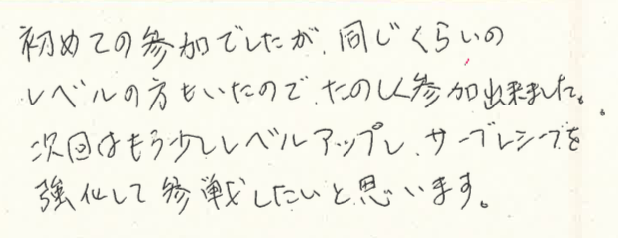 初めての参加でしたが、同じくらいの
レベルの方もいたので、たのしく参加出来ました。
次回はもう少しレベルアップし、サーブレシーブを
強化して参戦したいと思います。